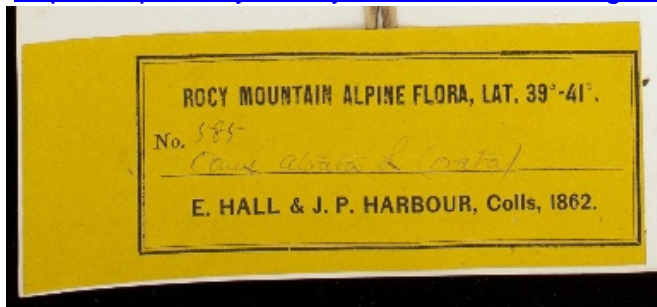 ROCY MOUNTAIN ALPINE FLORA, LAT. 39°-41°.
No. 585
Carex L (ovata)
E. HALL & J. P. HARBOUR, Colls, 1862.